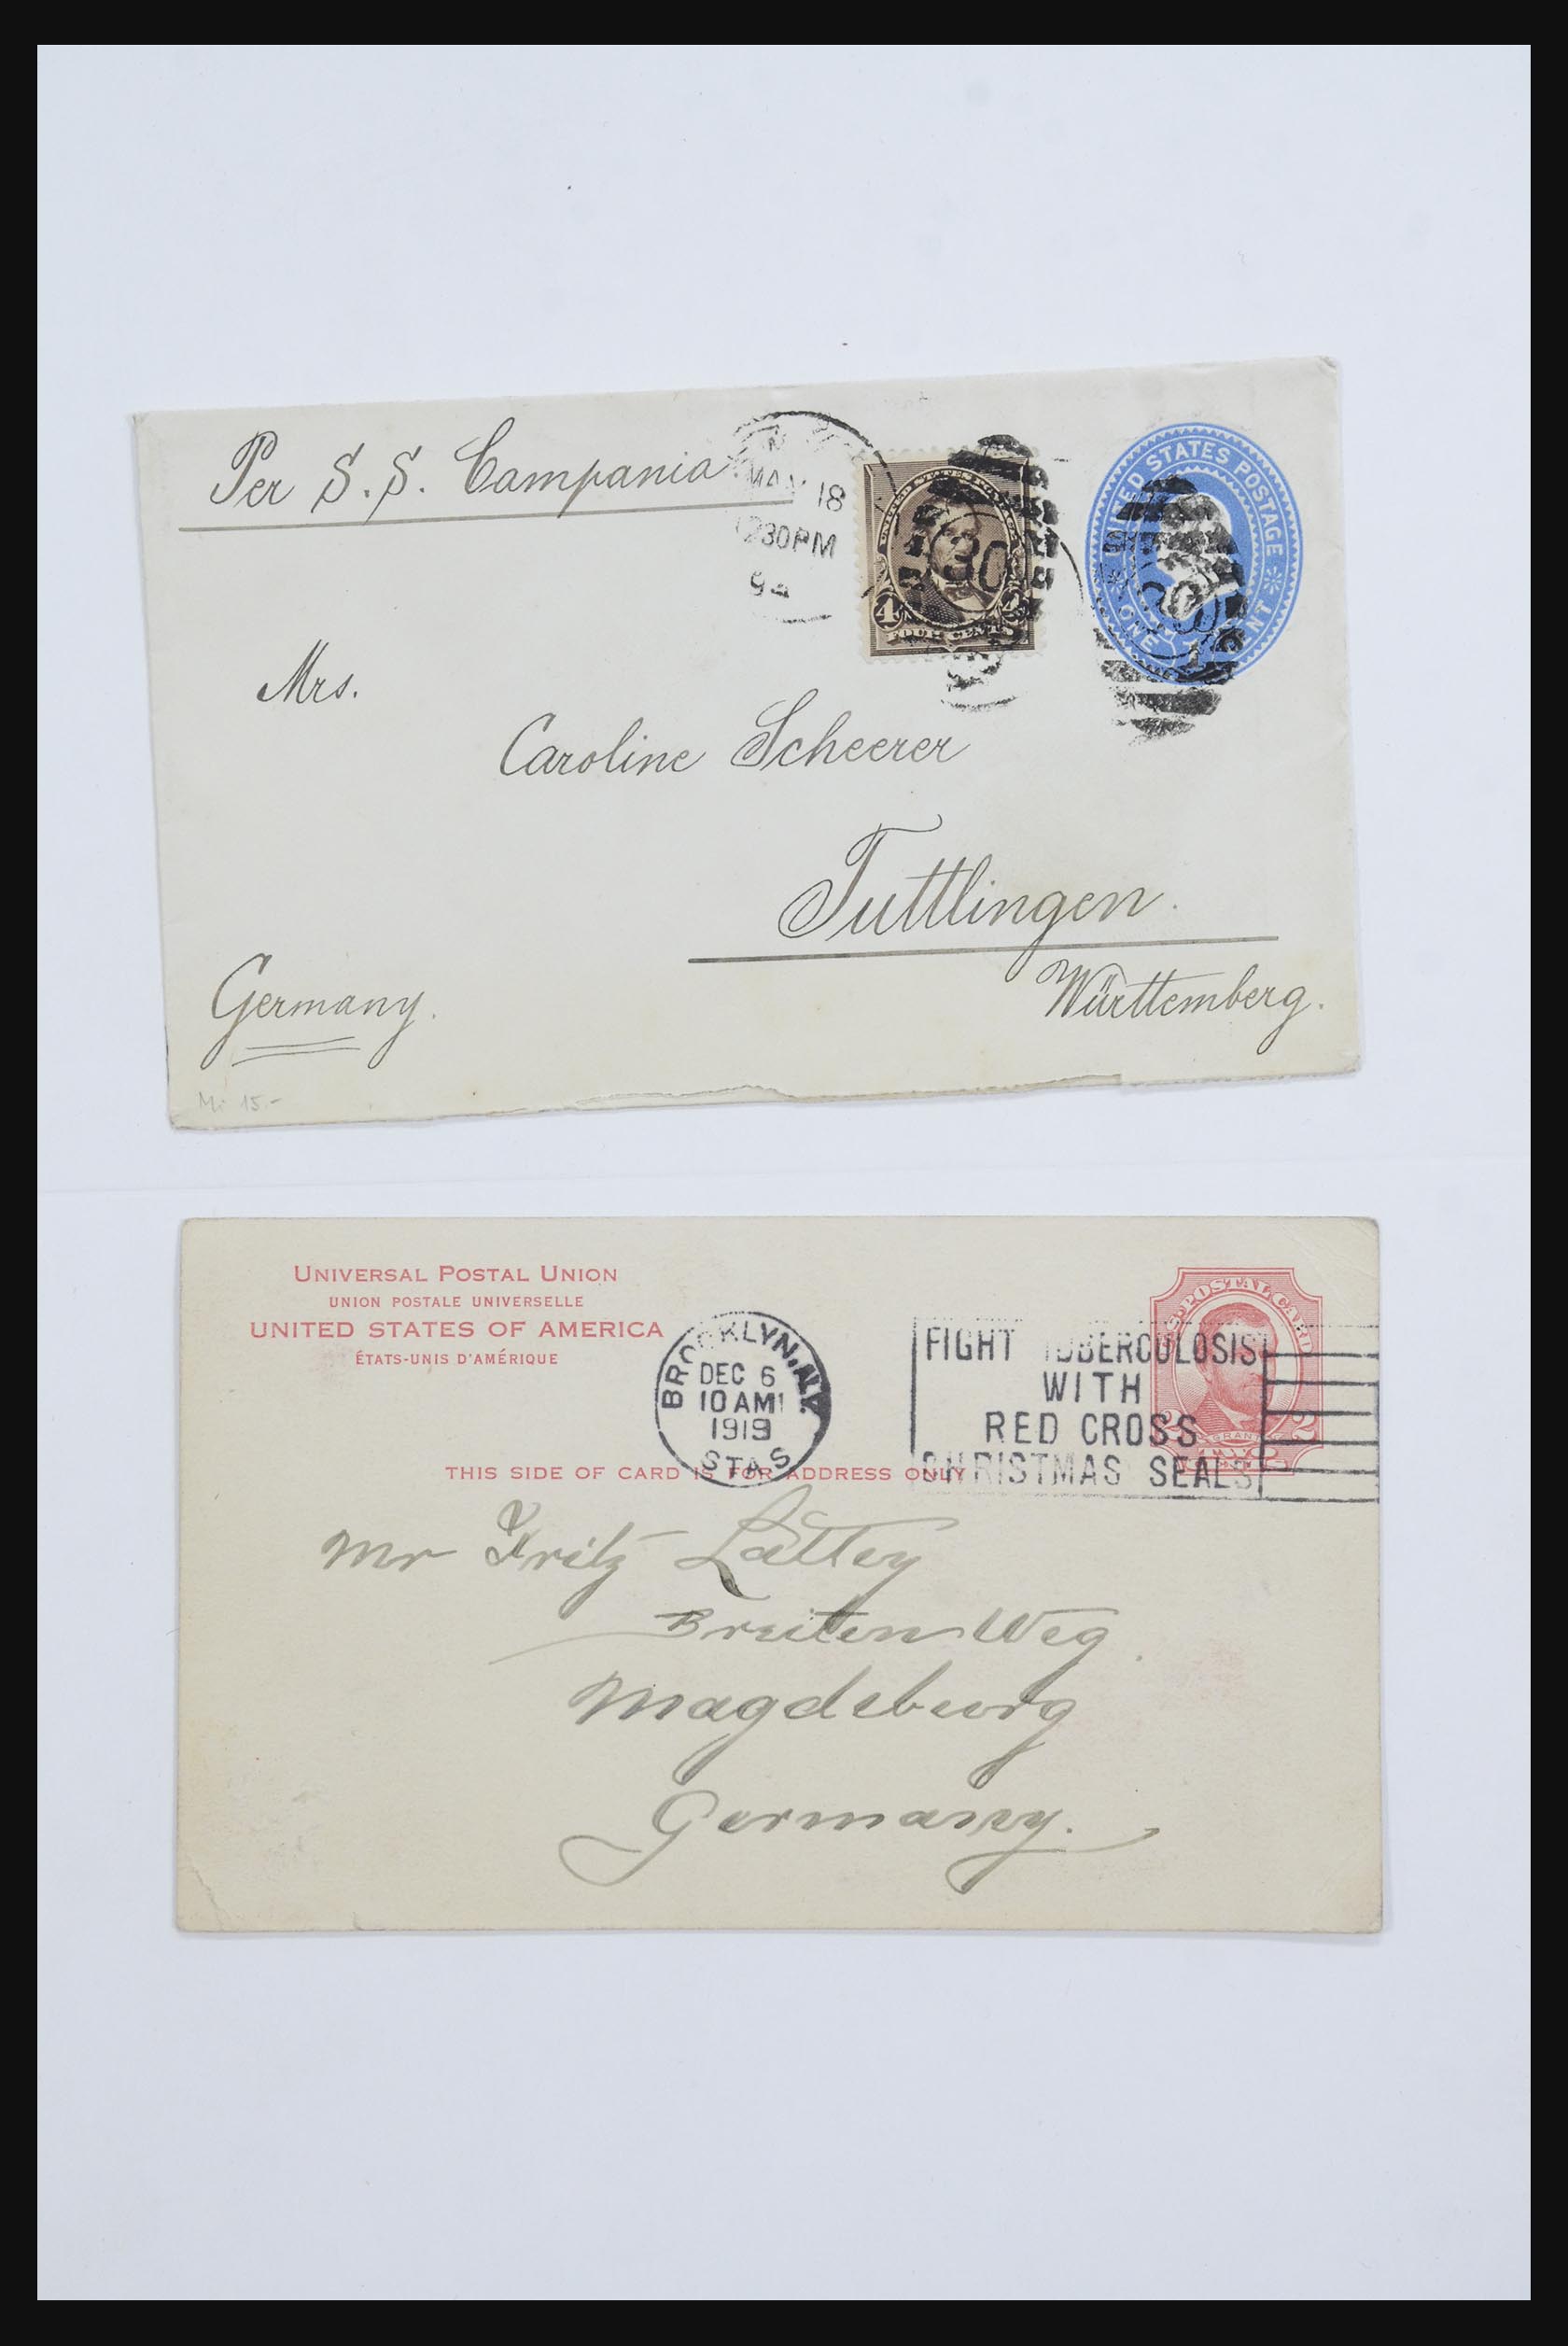 Per S.S. Campania
MAY 18
1230PM
94
UNITED STATES POSTAGE
ONE CENT
30
30
4 4
FOUR CENTS
Mrs.
Caroline Scheerer
Tuttlingen.
Württemberg.
Germany.
Mi 15.-
UNIVERSAL POSTAL UNION
UNION POSTALE UNIVERSELLE
UNITED STATES OF AMERICA
ÉTATS-UNIS D'AMÉRIQUE
THIS SIDE OF CARD IS FOR ADDRESS ONLY
BROOKLYN, N.Y.
DEC 6
10 AM
1919
STA S
FIGHT TUBERCULOSIS
WITH
RED CROSS
CHRISTMAS SEALS
POSTAL CARD
GRANT
2
Mr Fritz Lattey
Breiten Weg.
Magdeburg
Germany.